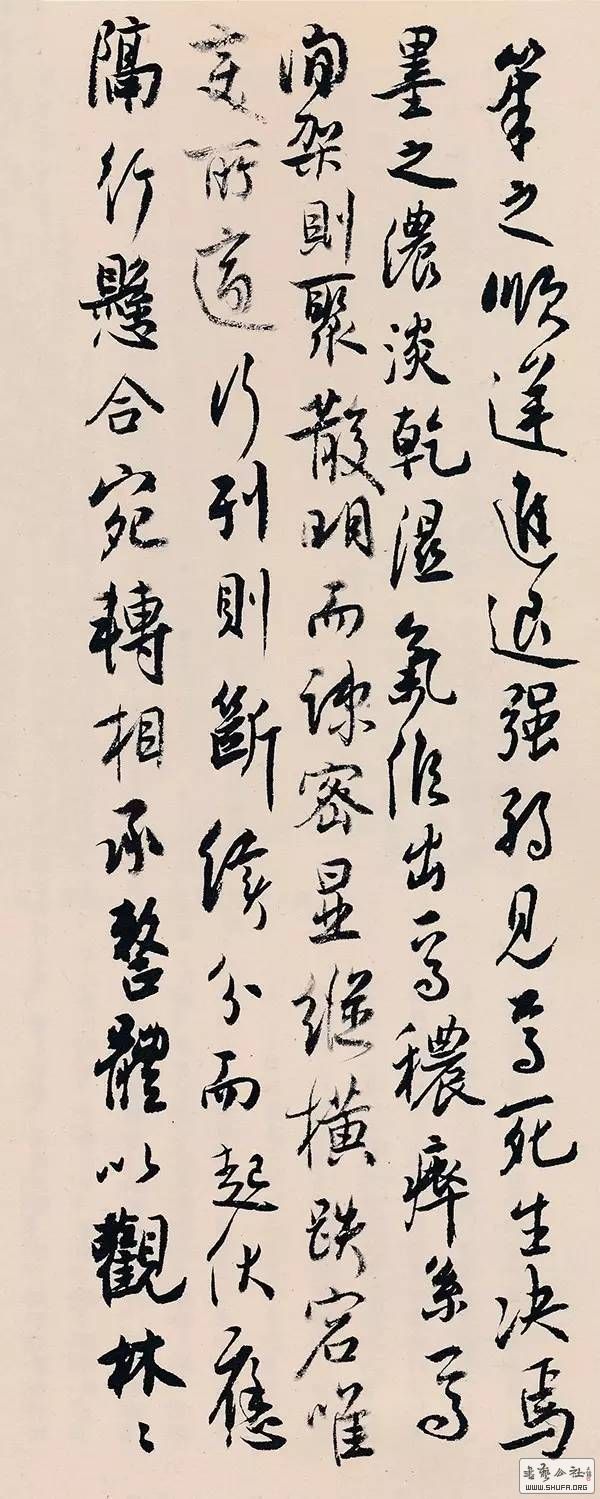 筆之順逆進退强弱見焉死生决焉
墨之濃淡乾濕氣候出焉穠瘁系焉
間架則聚散明而疎密显縱橫跌宕唯
变所適行列則斷續分而起伏應
隔行懸合宛轉相承整體以觀林〻
書藝公社
WWW.SHUFA.ORG